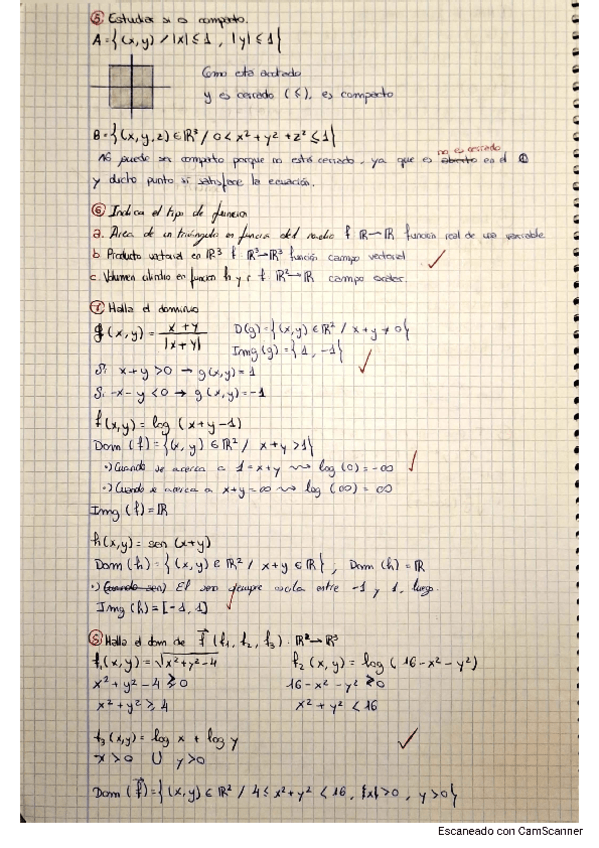 ⑤ Estudiar si es compacto.
A = {(x,y) / |x| ≤ 1 , |y| ≤ 1}
Como está acotado
y es cerrado (≤), es compacto
B = {(x,y,z) ∈ ℝ³ / 0 < x² + y² + z² ≤ 1}
no es cerrado
No puede ser compacto porque no está cerrado, ya que es abierto en el 0
y dicho punto si satisface la ecuación.
⑥ Indica el tipo de función
a. Área de un triángulo en función del radio f ℝ→ℝ función real de una variable
b Producto vectorial en ℝ³ f: ℝ³→ℝ³ función campo vectorial
c. Volumen cilindro en función h y r f: ℝ²→ℝ campo escalar.
⑦ Halla el dominio
g(x,y) = x+y / |x+y| D(g) = {(x,y) ∈ ℝ² / x+y ≠ 0}
Img(g) = {1, -1}
Si x+y > 0 → g(x,y) = 1
Si -x-y < 0 → g(x,y) = -1
f(x,y) = log (x+y-1)
Dom (f) = {(x,y) ∈ ℝ² / x+y > 1}
·) Cuando se acerca a 1 = x+y ⇝ log (0) = -∞
·) Cuando se acerca a x+y = ∞ ⇝ log (∞) = ∞
Img (f) = ℝ
h(x,y) = sen (x+y)
Dom (h) = {(x,y) ∈ ℝ² / x+y ∈ ℝ}, Dom (h) = ℝ
·) Cuando sen) El seno siempre oscila entre -1 y 1, luego.
Img (h) = [-1, 1]
⑧ Halla el dom de f (f₁, f₂, f₃) : ℝ²→ℝ³
f₁(x,y) = √x²+y²-4 f₂(x,y) = log (16-x²-y²)
x² + y² - 4 ≥ 0 16 - x² - y² > 0
x² + y² ≥ 4 x² + y² < 16
f₃(x,y) = log x + log y
x > 0 ∪ y > 0
Dom (f) = {(x,y) ∈ ℝ² / 4 ≤ x² + y² < 16, x > 0, y > 0}
Escaneado con CamScanner